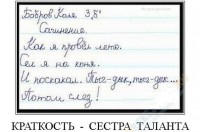 Бобров Коля 3 "Б"
Сочинение.
Как я провёл лето.
Сел я на коня.
И поскакал. Тыг-дык, тыг-дык...
Потом слез!
КРАТКОСТЬ - СЕСТРА ТАЛАНТА